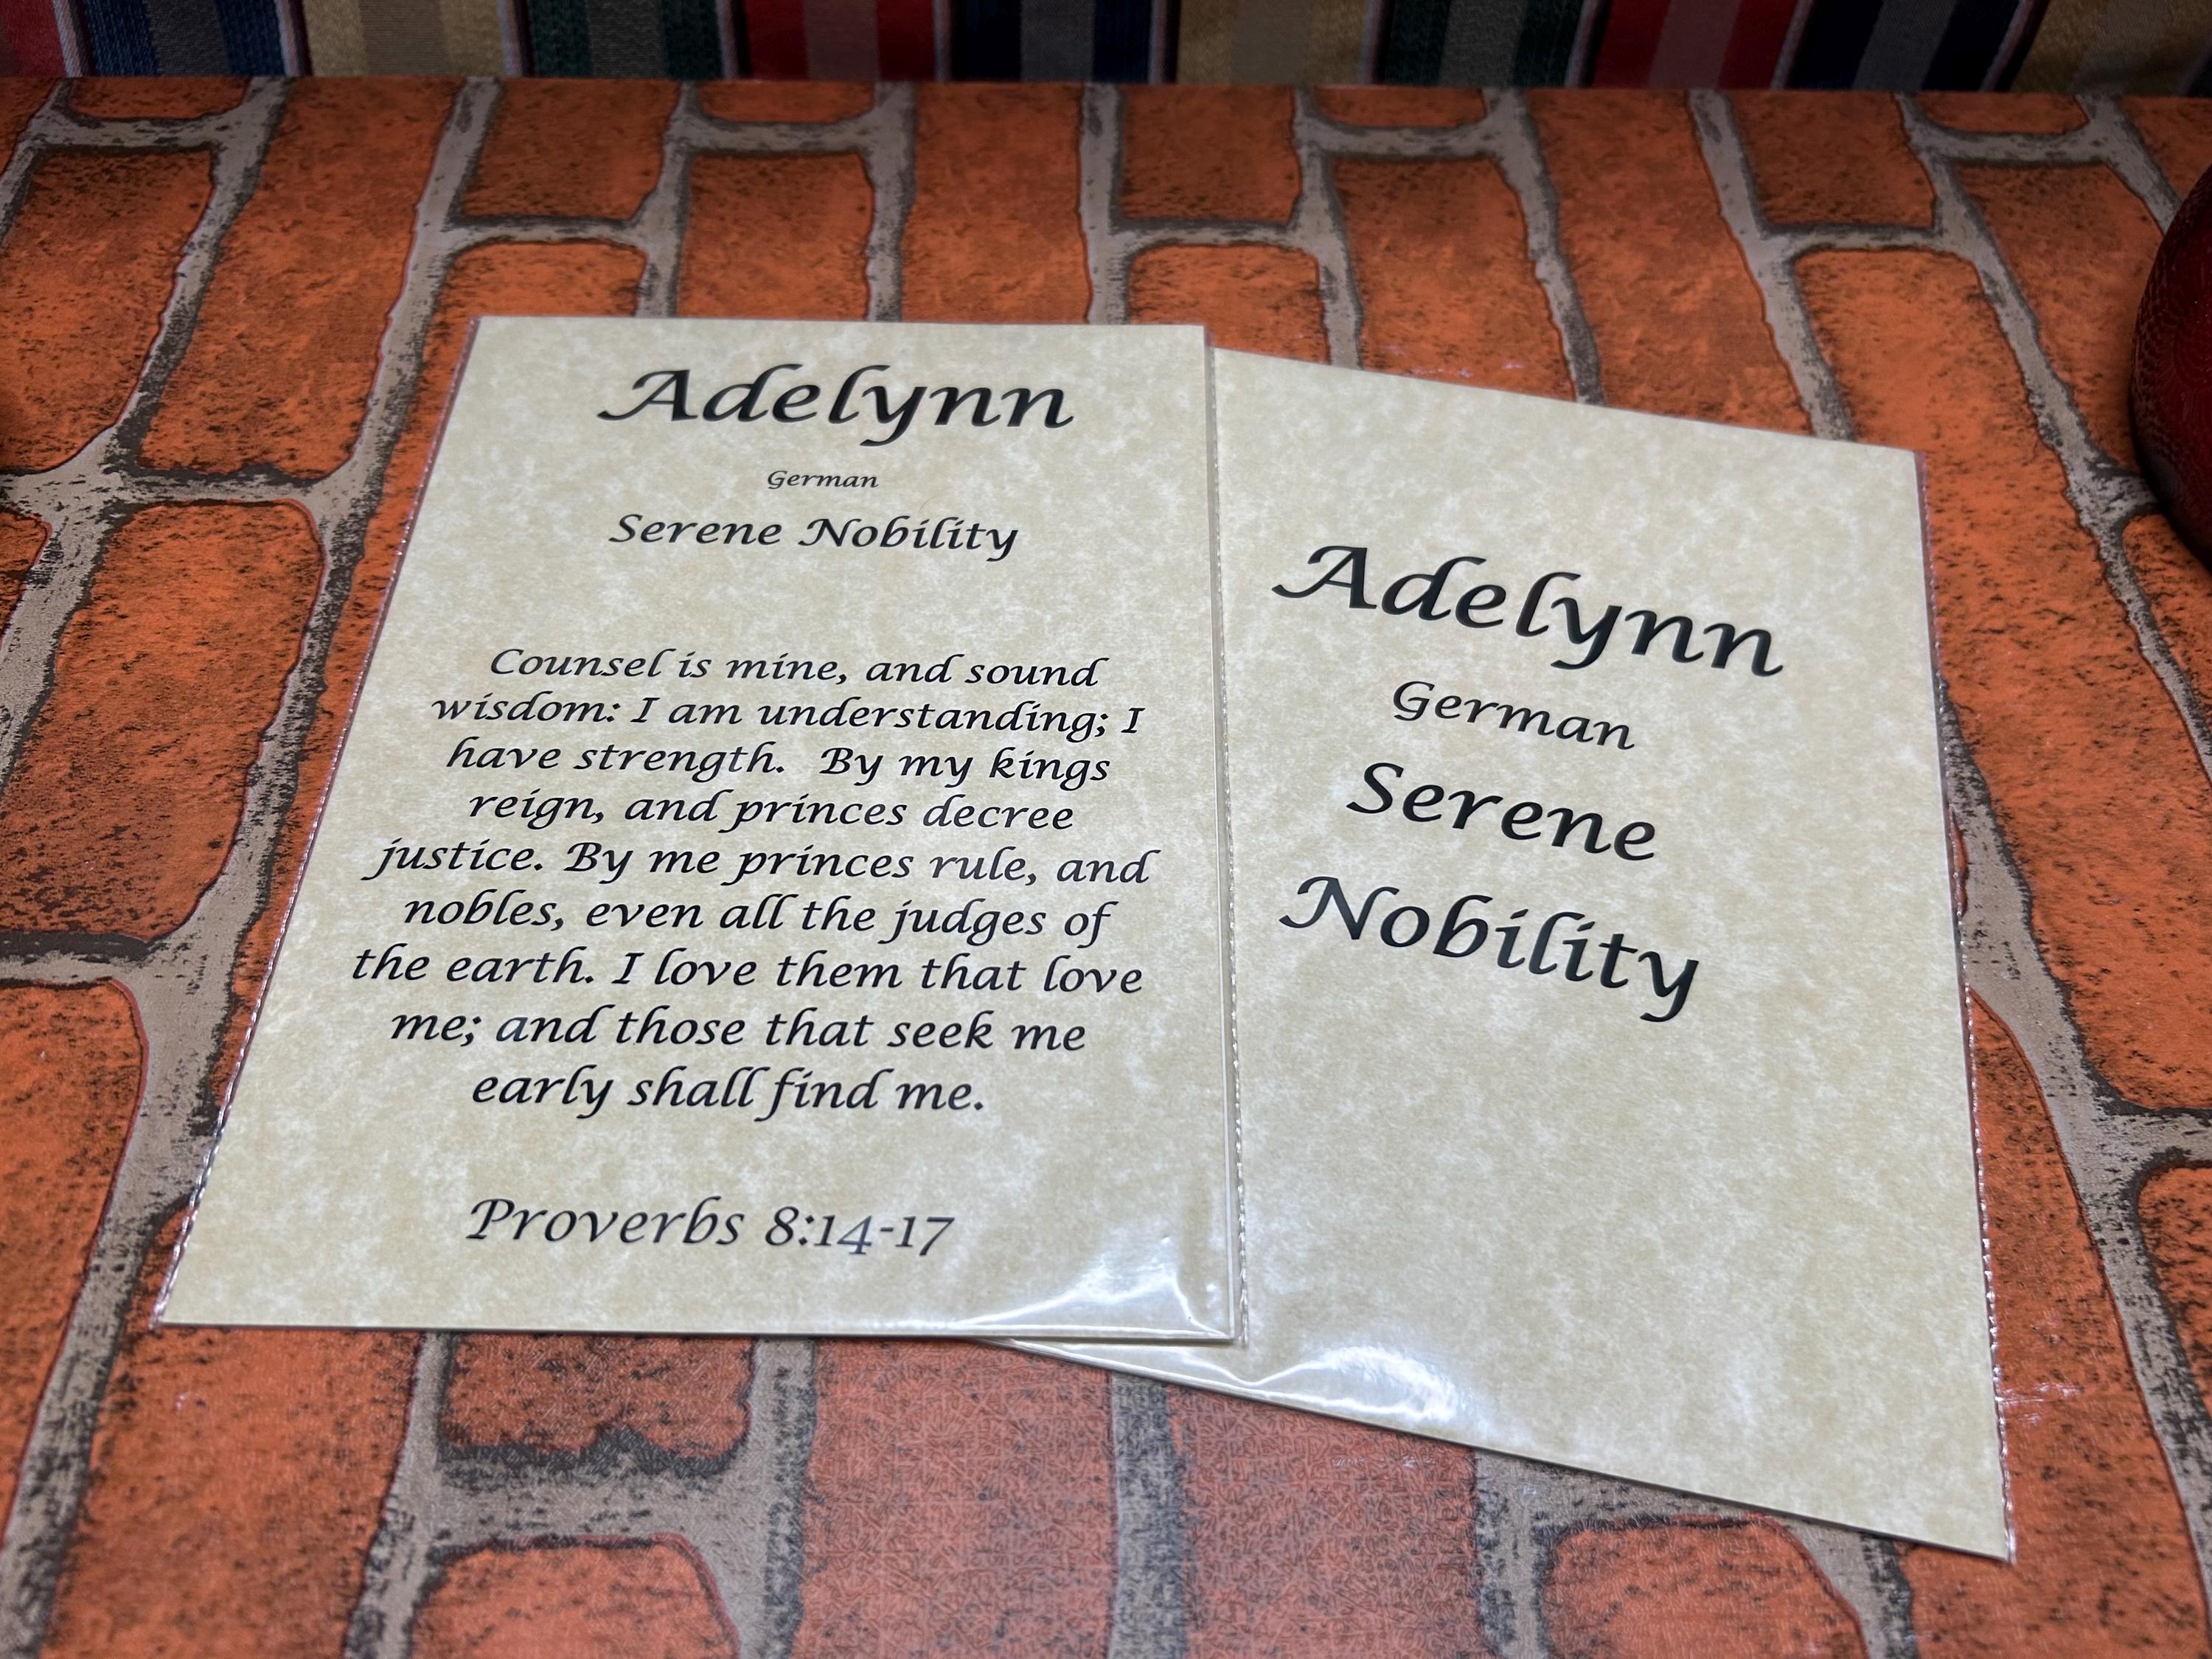 Adelynn
German
Serene Nobility
Counsel is mine, and sound
wisdom: I am understanding; I
have strength. By my kings
reign, and princes decree
justice. By me princes rule, and
nobles, even all the judges of
the earth. I love them that love
me; and those that seek me
early shall find me.
Proverbs 8:14-17
Adelynn
German
Serene
Nobility